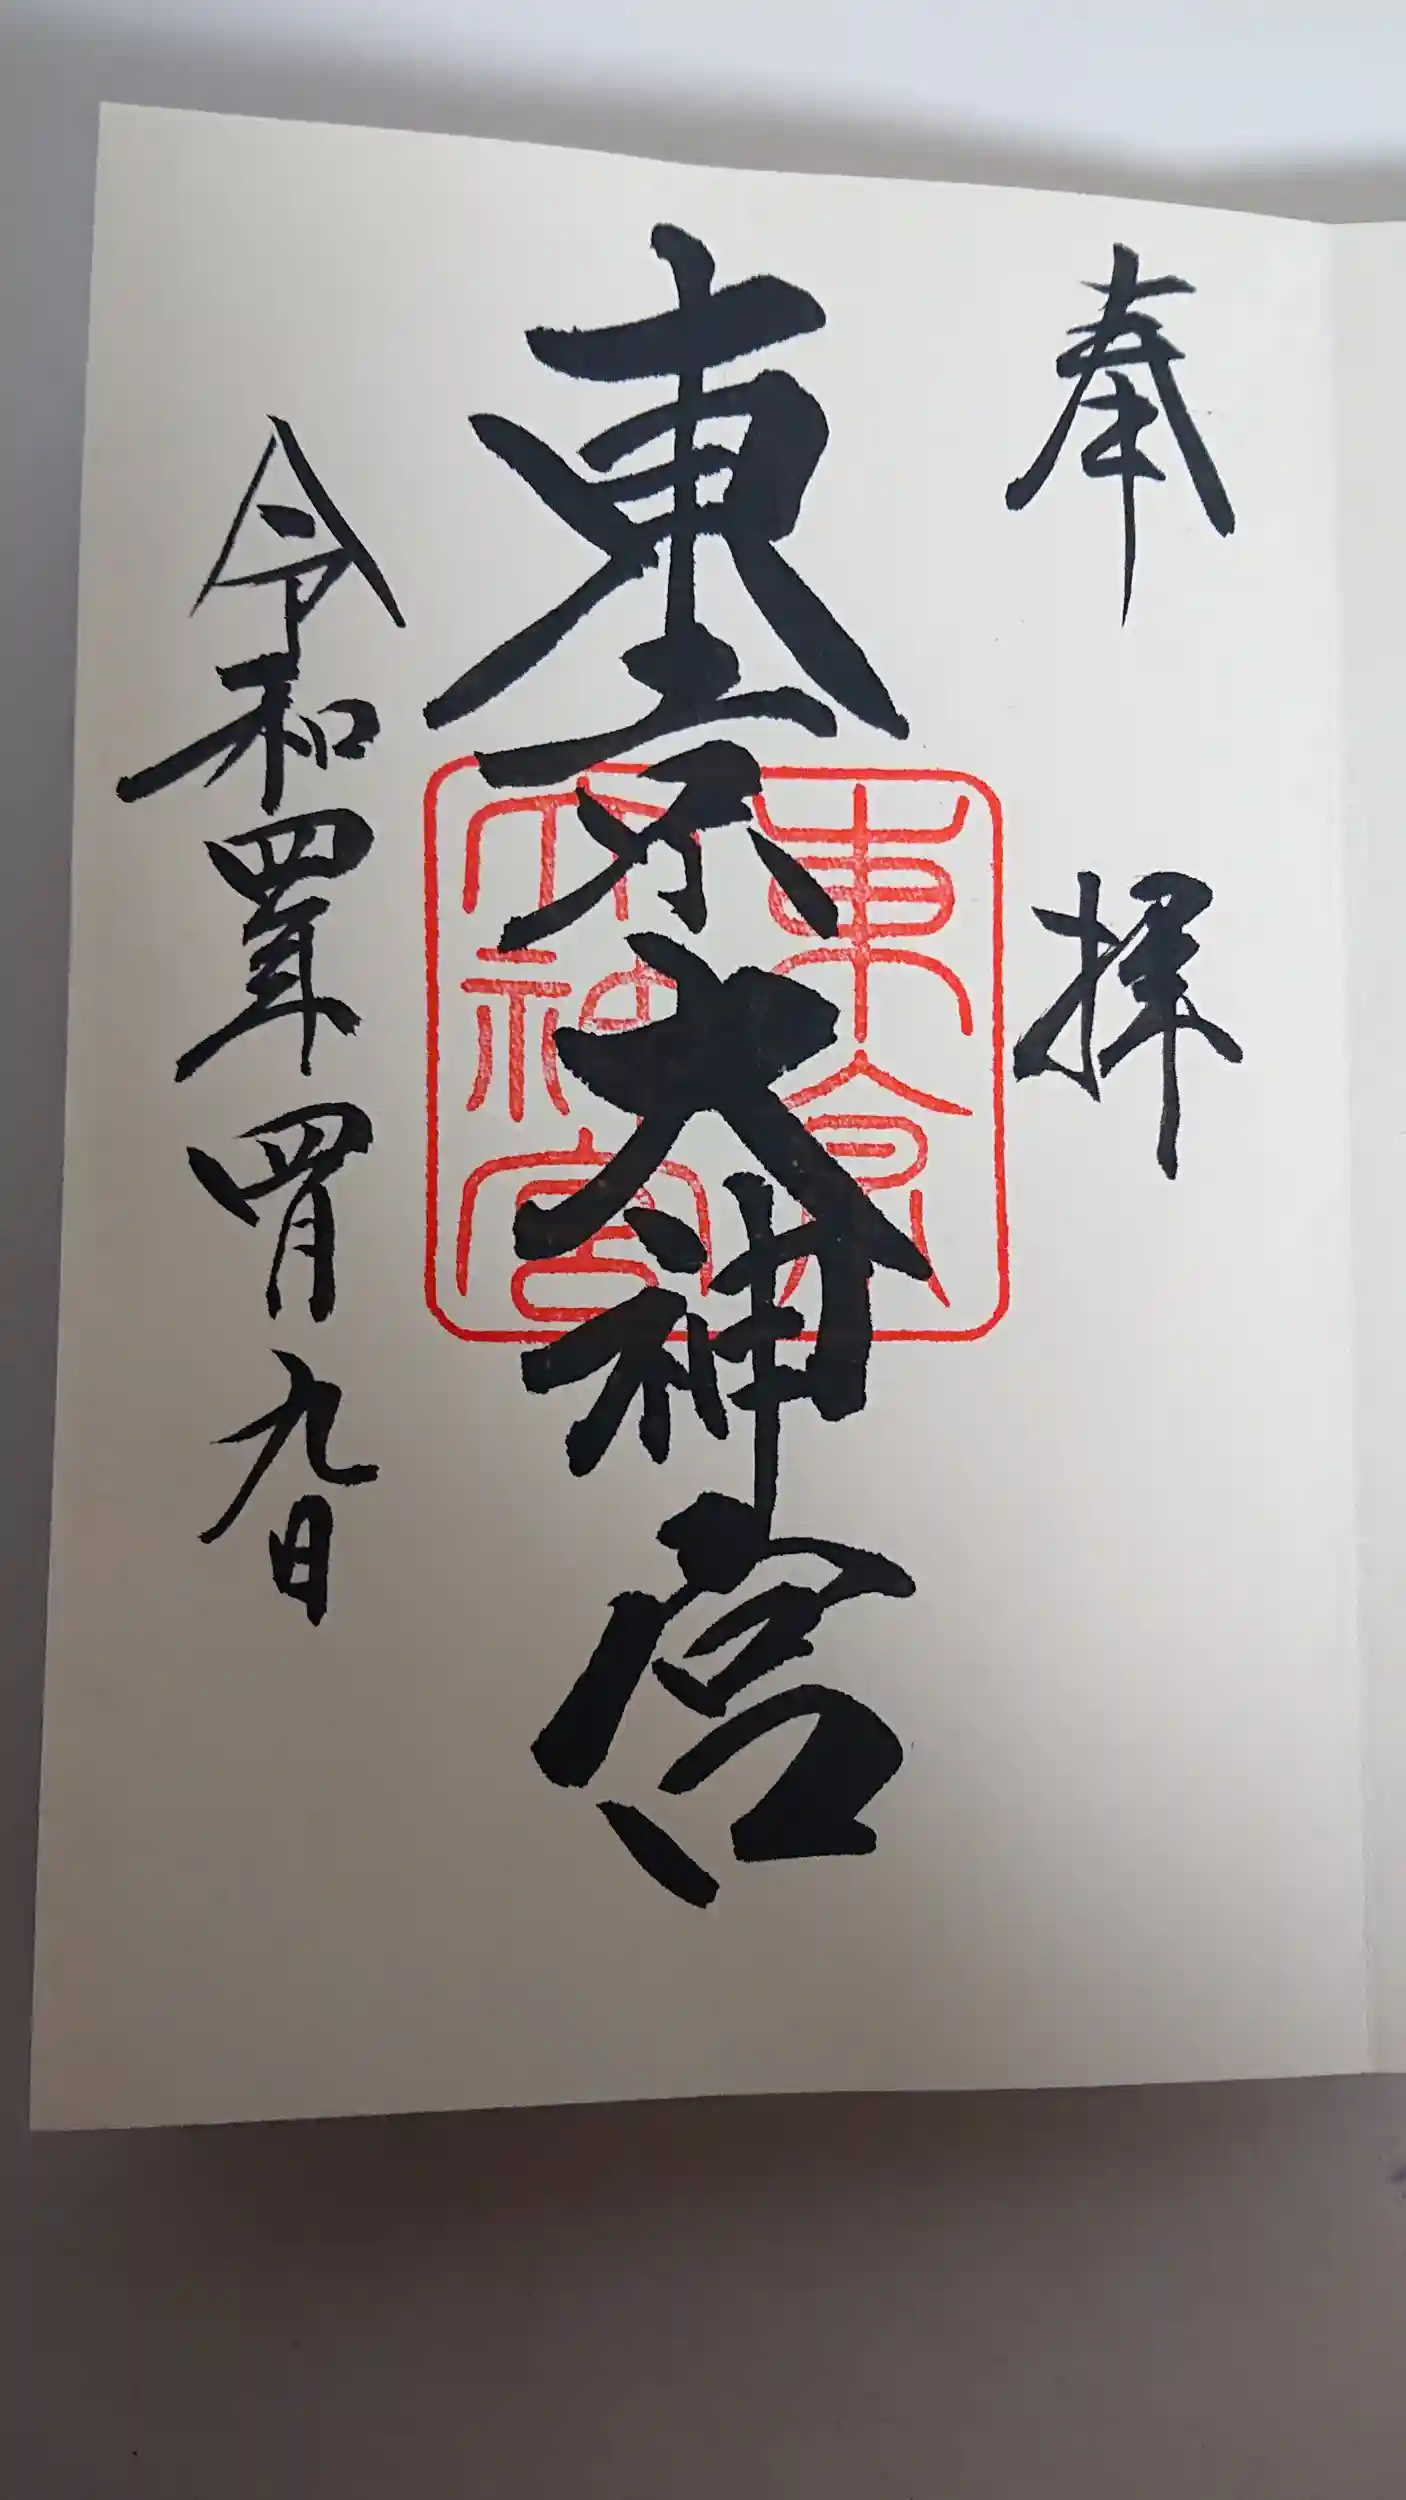 奉拝
東京大神宮
東京大神宮
令和四年四月九日